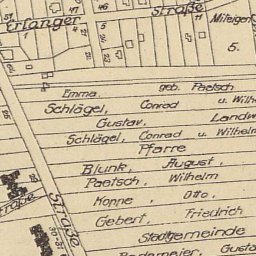 Erlanger Straße
Miteigen
5.
Emma geb. Paetsch
Schlägel, Conrad u. Wilh
Gustav, Landw
Schlägel, Conrad u. Wilhelm
Pfarre
Blunk, August,
Paetsch, Wilhelm
Konne, Otto,
Gebert, Friedrich
Stadtgemeinde
Straße
Straße
Gusta